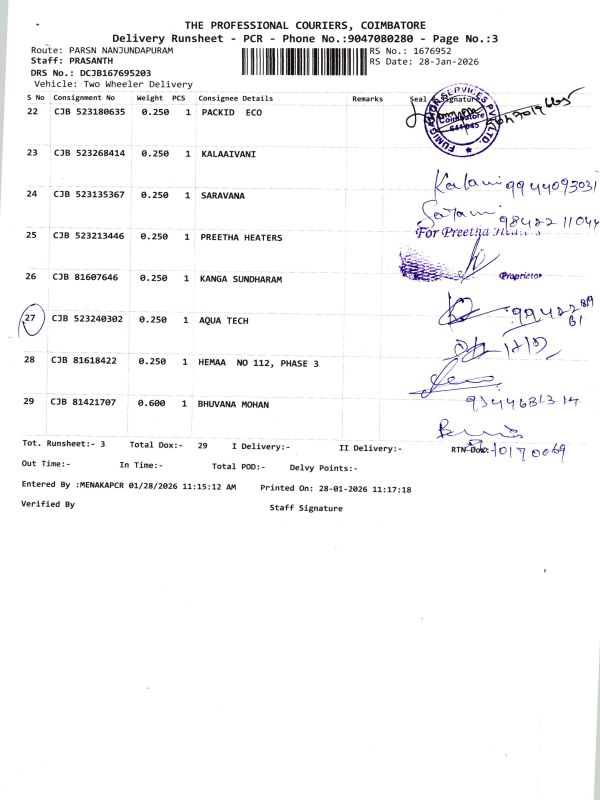 THE PROFESSIONAL COURIERS, COIMBATORE
Delivery Runsheet - PCR - Phone No.:9047080280 - Page No.:3
Route: PARSN NANJUNDAPURAM RS No.: 1676952
Staff: PRASANTH RS Date: 28-Jan-2026
DRS No.: DCJB167695203
Vehicle: Two Wheeler Delivery
S No Consignment No Weight PCS Consignee Details Remarks Seal & Signature
22 CJB 523180635 0.250 1 PACKID ECO
FUMIGATION SERVICES PVT. LTD. Coimbatore 641 045
23 CJB 523268414 0.250 1 KALAAIVANI
Kalani 9944093031
24 CJB 523135367 0.250 1 SARAVANA
98422 11044
25 CJB 523213446 0.250 1 PREETHA HEATERS
For Preetha
Proprietor
26 CJB 81607646 0.250 1 KANGA SUNDHARAM
27 CJB 523240302 0.250 1 AQUA TECH
28 CJB 81618422 0.250 1 HEMAA NO 112, PHASE 3
29 CJB 81421707 0.600 1 BHUVANA MOHAN
Tot. Runsheet:- 3 Total Dox:- 29 I Delivery:- II Delivery:- RTN Dox:
Out Time:- In Time:- Total POD:- Delvy Points:-
Entered By :MENAKAPCR 01/28/2026 11:15:12 AM Printed On: 28-01-2026 11:17:18
Verified By Staff Signature